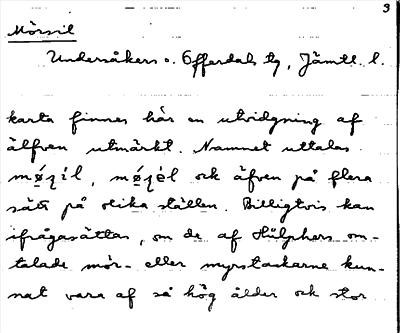 3
Mörsil
Undersåkers o. Offerdals tg, Jämtl. l.
karta finnes här en utvidgning af
älfven utmärkt. Namnet uttalas
mǿzíl, mǿzèl och äfven på flera
sätt på olika ställen. Billigtvis kan
ifrågasättas, om de af Hülphers om-
talade mör- eller myrstackarne kun-
nat vara af så hög ålder och stor